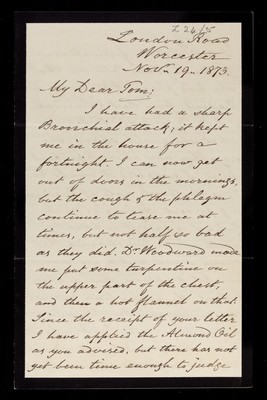 London Road
Worcester
Nov. 19. 1873.
My Dear Tom;
I have had a sharp
Bronchial attack; it kept
me in the house for a
fortnight. I can now get
out of doors in the mornings,
but the cough & the phlegm
continue to tease me at
times, but not half so bad
as they did. Dr. Woodward made
me put some turpentine on
the upper part of the chest,
and then a hot flannel on that.
Since the receipt of your letter
I have applied the Almond Oil
as you advised, but there has not
yet been time enough to judge